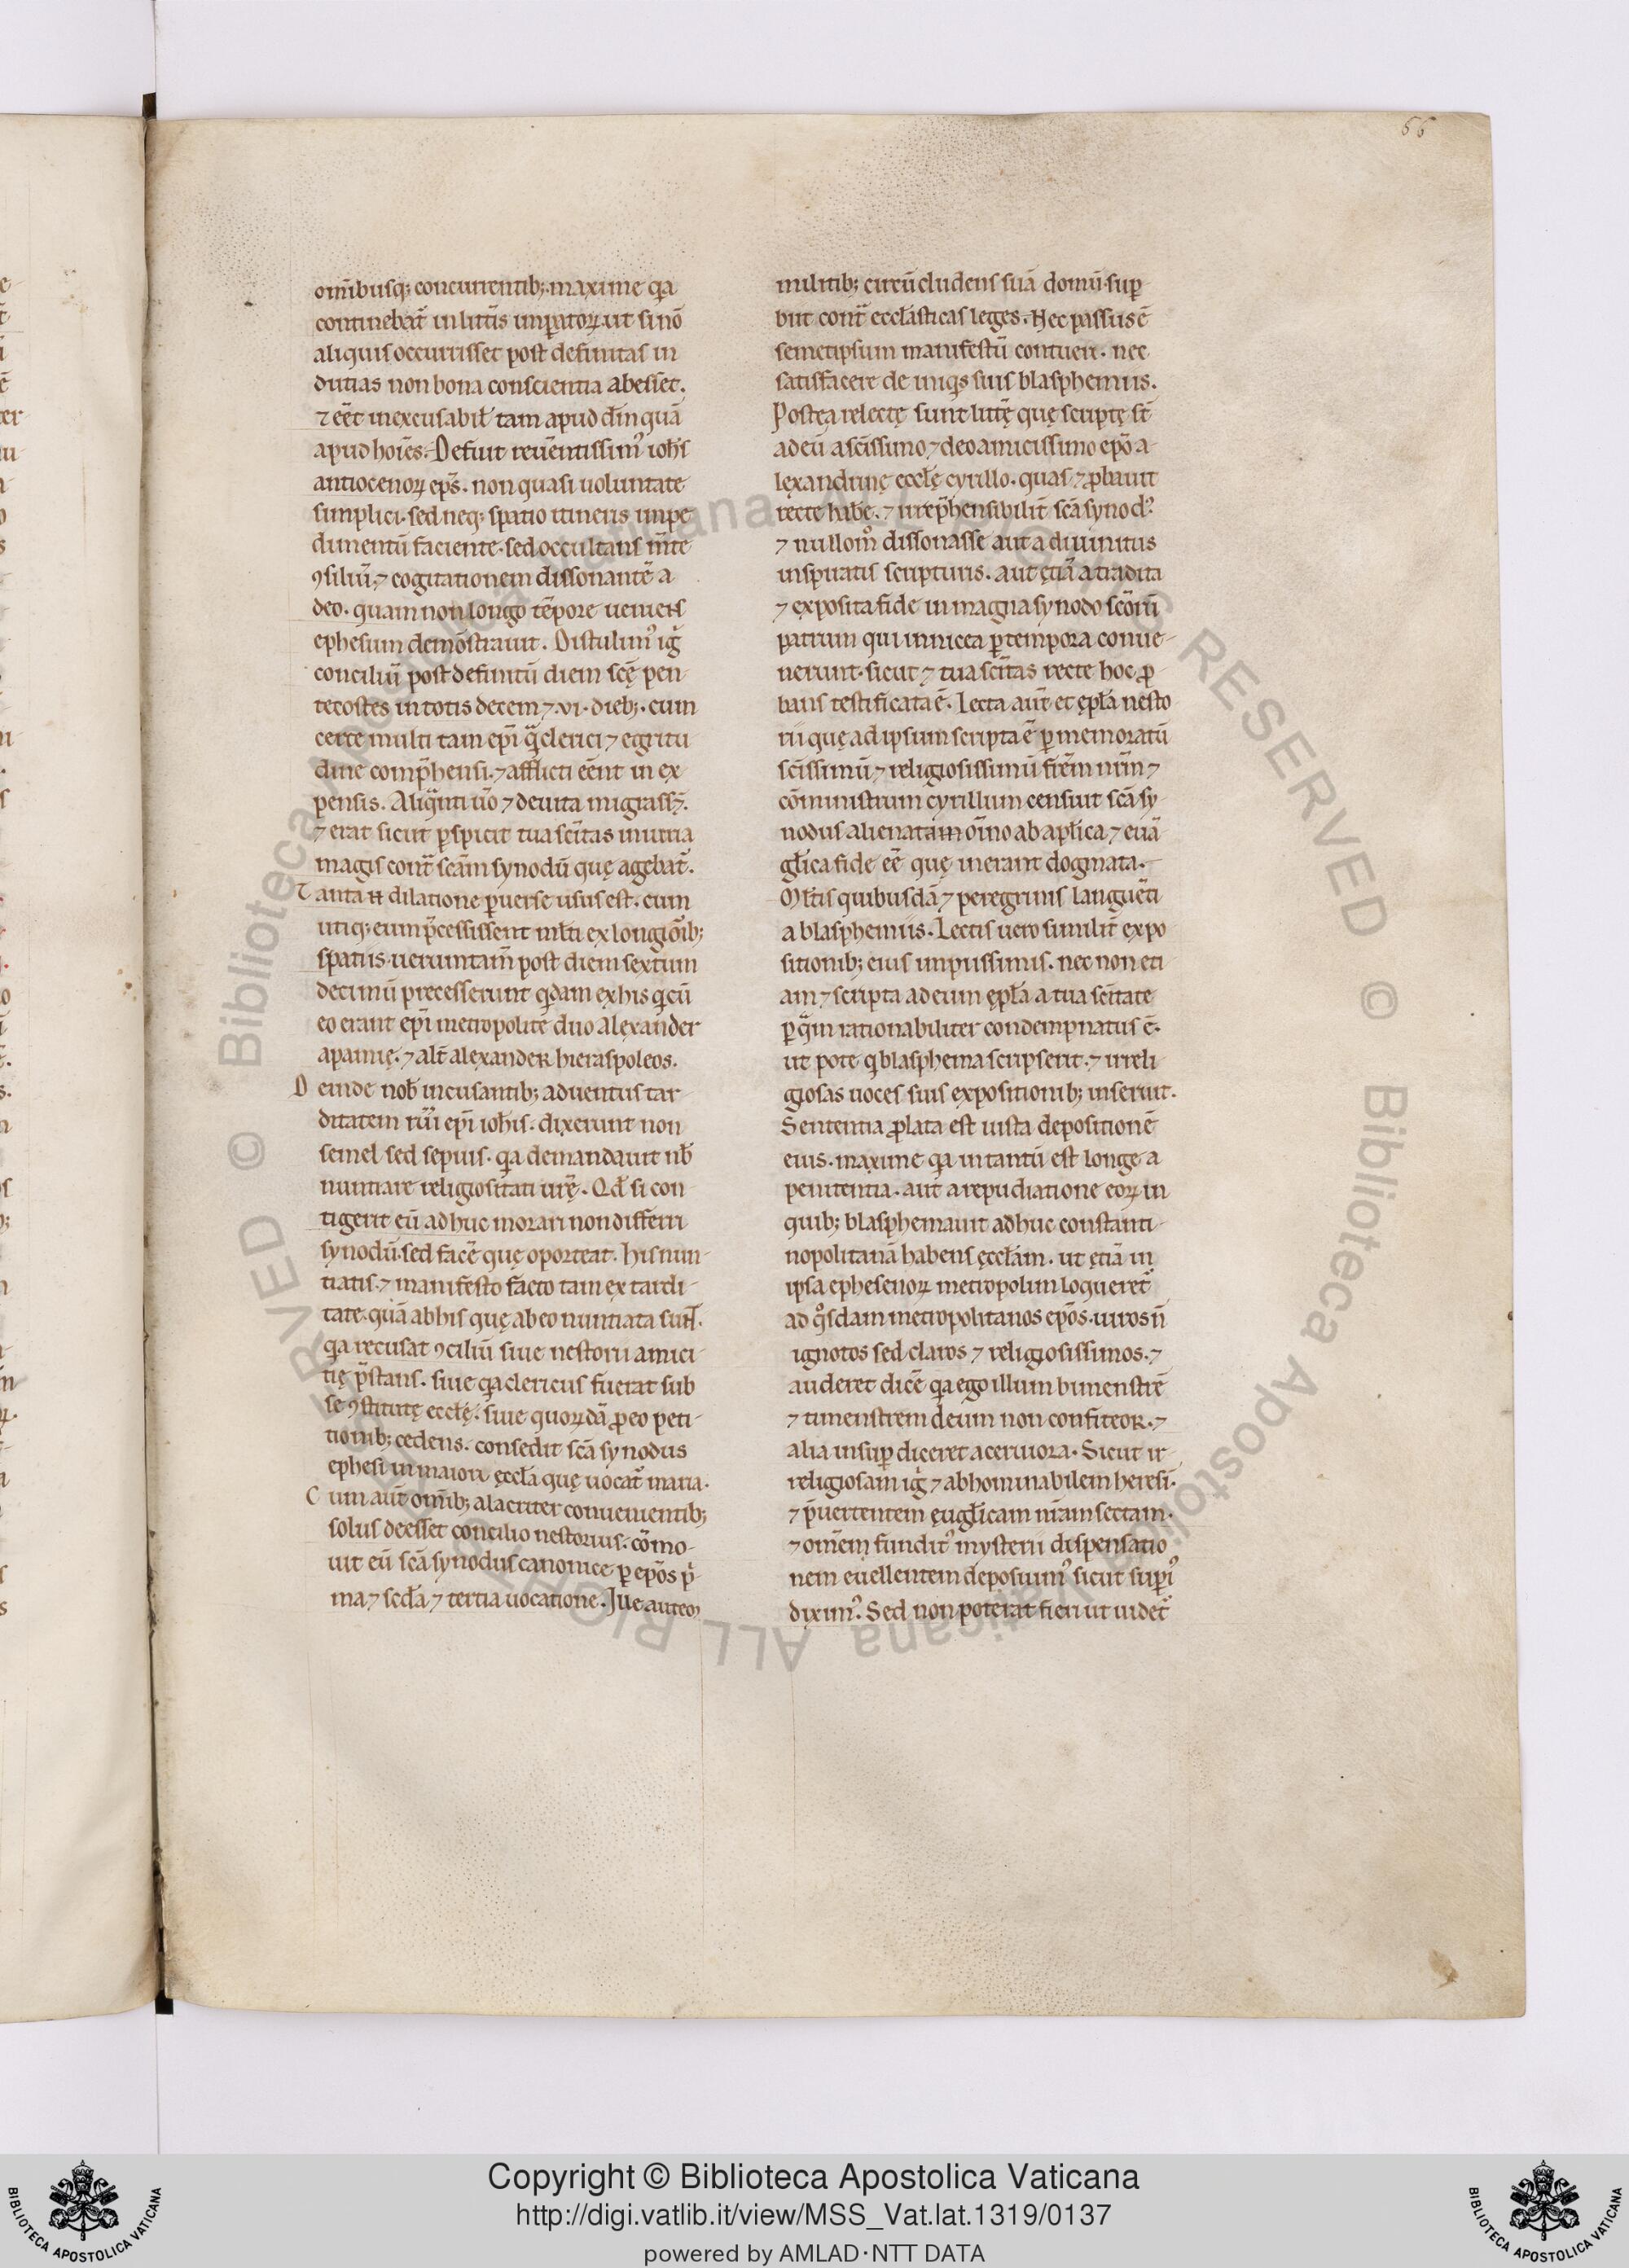 56
om̅ibusq; concurrentib;. maxime q̇a
continebat̃ in litt̃is imp̃atoꝝ. ut si nõ
aliquis occurrisset post definitas in
dutias non bona conscientia abesset.
⁊ eẽt inexcusabil̃ tam apud dm̅ quã
apud hoĩes. Defuit reuẽntissim᾽ ioh̃s
antiocenoꝝ ep̃s. non quasi uoluntate
simplici. sed neq; spatio itineris impe
dimentũ faciente. sed occultans m̃te
ꝯsiliũ. ⁊ cogitationem dissonantẽ a
deo. quam non longo tẽpore ueniens
ephesum demõstrauit. Distulim᾽ ig̃
conciliũ post definitũ diem scẽ pen-
tecostes in totis decem ⁊ .vi. dieb;. cum
certe multi tam ep̃i q̃ clerici ⁊ egritu
dine comp̃hensi. ⁊ afflicti eẽnt in ex
pensis. Aliq̃nti ũo ⁊ de uita migrass̃.
⁊ erat sicut ꝑspicit tua scĩtas iniuria
magis cont̃ scãm synodũ quę agebat̃.
Tanta N dilatione ꝑuerse usus est. cum
utiq; eum p̃cessissent ml̃ti ex longiõib;
spatiis. ueruntam̃ post diem sextum
decimũ precesserunt q̇dam ex his q̇ cũ
eo erant ep̃i metropolite duo alexander
apamię. ⁊ alt̃ alexander hieraspoleos.
Deinde nob̃ incusantib; aduentus tar-
ditatem rũi ep̃i ioh̃is. dixerunt non
semel sed sepius. q̇a demandauit nb̃
nuntiare religiositati ur̃ę. Qd̃ si con
tigerit eũ adhuc morari non differri
synodũ. sed facẽ quę oporteat. his nun-
tiatis. ⁊ manifesto facto tam ex tardi-
tate. quã ab his quę ab eo nuntiata sunt.
q̇a recusat ꝯciliũ siue nestorii amici-
tię p̃stans. siue q̇a clericus fuerat sub
se ꝯstitutę eccl̃ę. siue quoꝝdã ꝓ eo peti-
tionib; cedens. consedit scã synodus
ephesi in maiori ęccl̃a quę uocat᾽ maria.
Cum aut̃ om̃ib; alacriter conuenientib;
solus deesset concilio nestorius. cõmo-
uit eũ scã synodus canonice ꝑ ep̃os p̃-
ma ⁊ scd̃a ⁊ tertia uocatione. Ille auteꝫ
militib; circũcludens suã domũ. suꝑ-
biit cont̃ eccl̃asticas leges. Nec passus ẽ
semetipsum manifestũ contueri. nec
satisfacere de iniq̇s suis blasphemiis.
Postea relectę sunt litt̃ę quę scriptę st̃
ad eũ a scĩssimo ⁊ deo amicissimo ep̃o a-
lexandrinę eccl̃ę cyrillo. quas ⁊ ꝓbauit
recte hab̃e. ⁊ irrep̃hensibilit̃ scã synod᾽.
⁊ nullom̃ dissonasse aut a diuinitus
inspiratis scripturis. aut ętiã a tradita
⁊ exposita fide in magna synodo scõrũ
patrum qui in nicea ꝑ tempora conue-
nerunt. sicut ⁊ tua scĩtas recte hoc ꝓ
bans testificata ẽ. Lecta aut̃ et ępl̃a nesto
rii quę ad ipsum scripta ẽ ꝑ memoratũ
scĩssimũ ⁊ religiosissimũ fr̃em nr̃m ⁊
cõministrum cyrillum censuit scã sy-
nodus alienatam oĩno ab apl̃ica ⁊ euã-
gl̃ica fide eẽ quę inerant dogmata.
Ml̃tis quibusdã ⁊ peregrinis languẽti
a blasphemiis. Lectis uero similit̃ expo
sitionib; eius impiissimis. nec non eti
am ⁊ scripta ad eum ępl̃a a tua scĩtate
ꝑ q̃m rationabiliter condempnatus ẽ.
ut pote q̇ blasphema scripserit. ⁊ irreli
giosas uoces suis expositionib; inseruit.
Sententia ꝓlata est iusta depositionẽ
eius. maxime q̇a in tantũ est longe a
penitentia. aut a repudiatione eoꝝ in
quib; blasphemauit adhuc constanti-
nopolitanã habens ęccl̃am. ut ętiã in
ipsa ephesenoꝝ metropolim loqueret̃
ad q̊sdam metropolitanos ep̃os. uiros ñ
ignotos sed claros ⁊ religiosissimos. ⁊
auderet dicẽ q̇a ego illum bimenstrẽ
⁊ timenstrem deum non confiteor. ⁊
alia insuꝑ diceret aceruiora. Sicut ir
religiosam ig̃ ⁊ abhominabilem heresĩ.
⁊ p̃uertentem ęugl̃icam nr̃am sectam.
⁊ om̃em fundit᾽ mysterii dispensatio
nem euellentem deposuim᾽ sicut suꝑi᾽
diximᷤ. Sed non poterat fieri ut uidet̃
Copyright © Biblioteca Apostolica Vaticana
http://digi.vatlib.it/view/MSS_Vat.lat.1319/0137
powered by AMLAD·NTT DATA